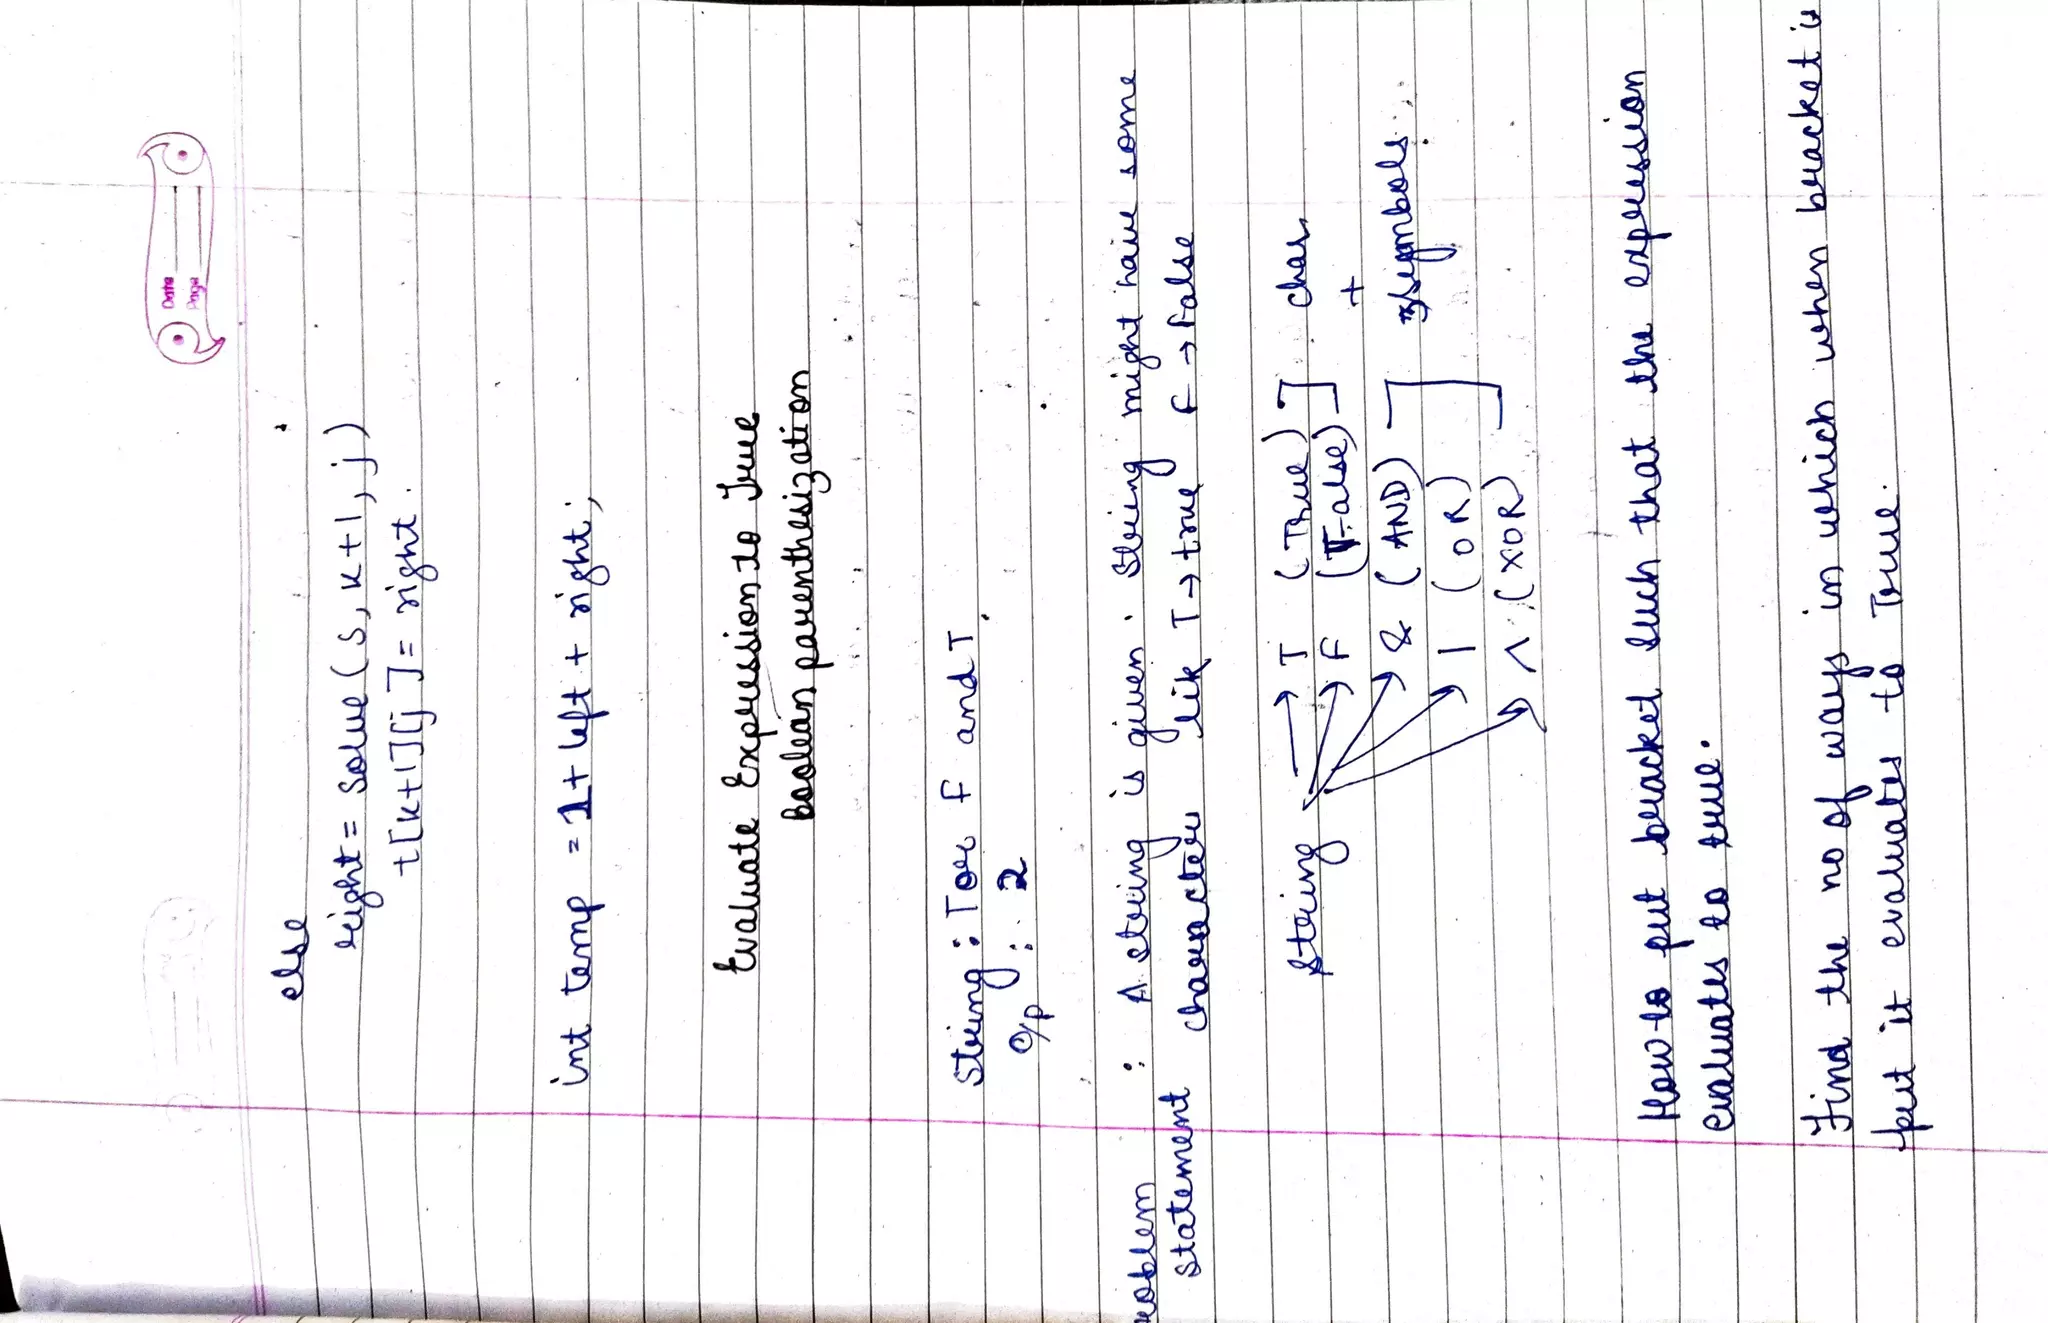 Date
Page
else
right = solve(s, k+1, j)
t[k+1][j] = right.
int temp = 1+ left + right;
Evaluate Expression to True
Boolean parenthesization
string: T or F and T
O/p : 2
roblem : A string is given. String might have some
statement character lik T → true F → False
string → T (True) ] char
F (False) +
& (AND) ] symbols
| (OR)
^ (XOR)
How to put bracket such that the expression
evaluates to true.
Find the no of ways in which when bracket is
put it evaluates to True.